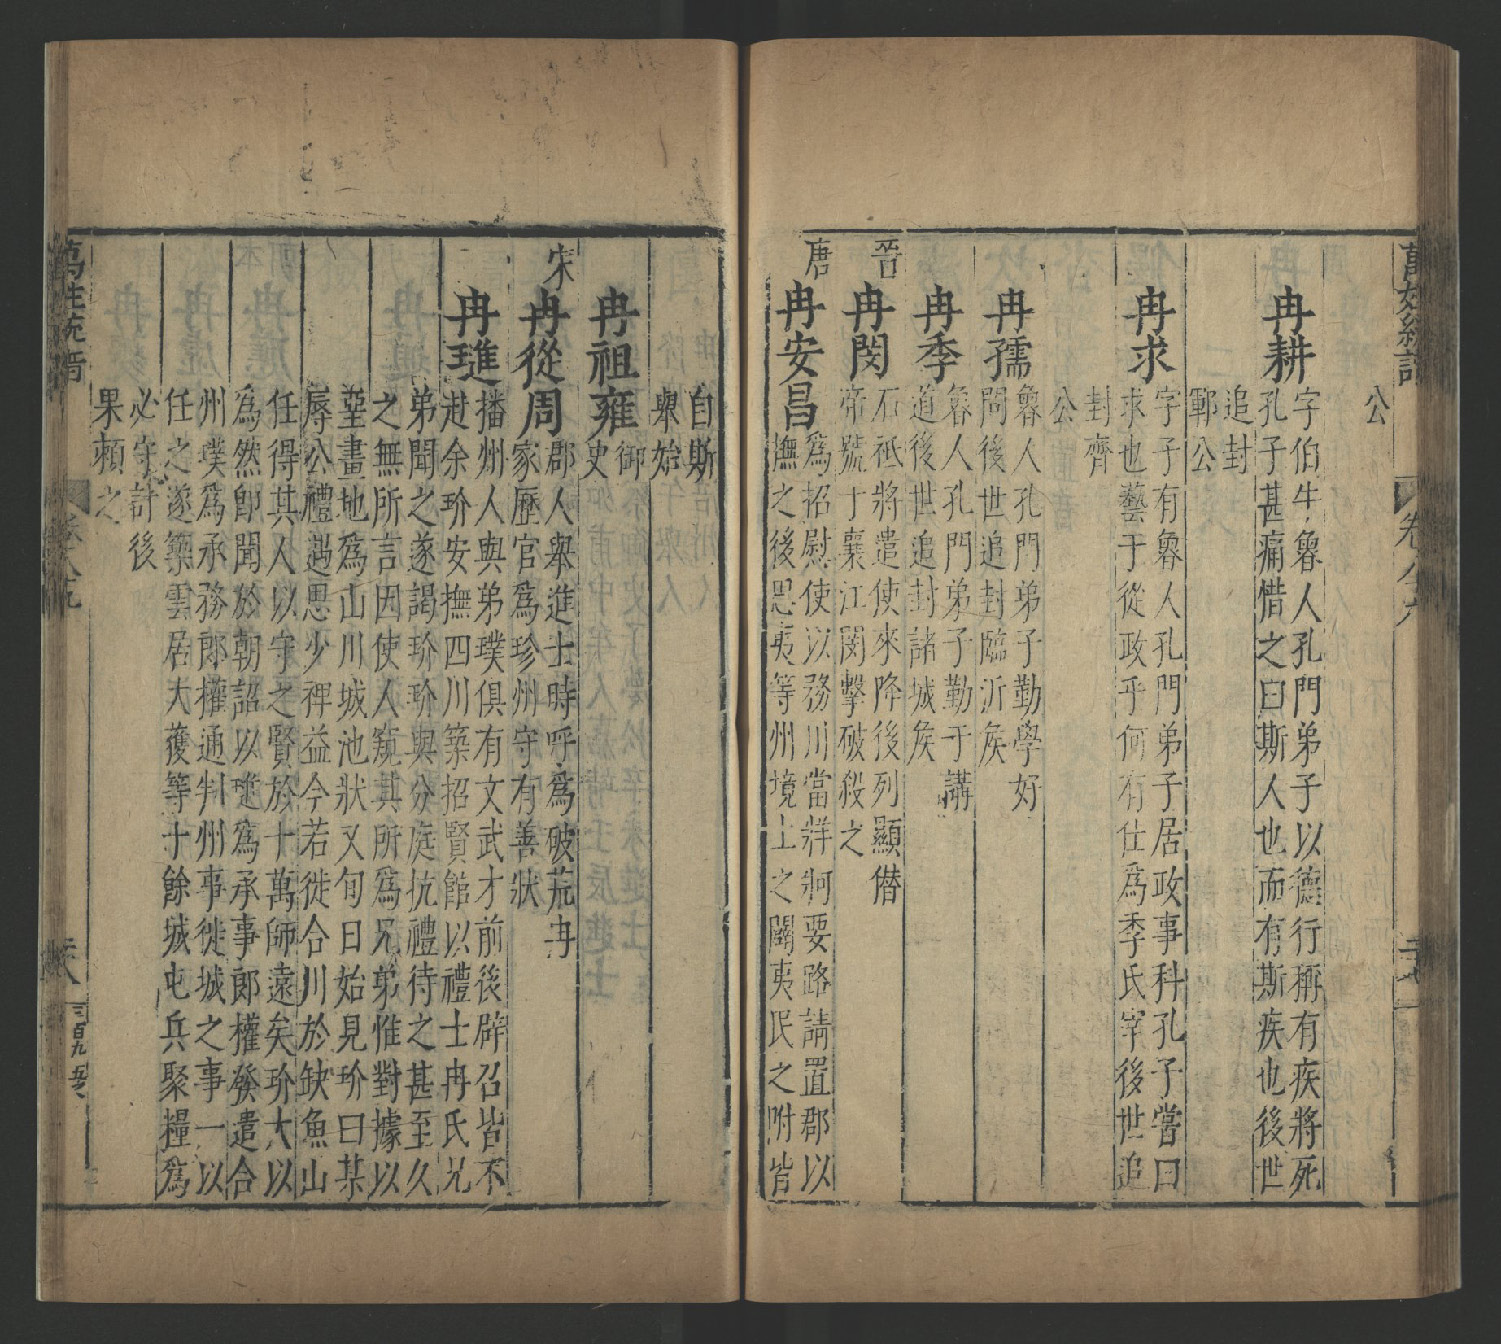 公
冉耕
字伯牛魯人孔門弟子以德行稱有疾將死
孔子甚痛惜之曰斯人也而有斯疾也後世
追封
鄆公
冉求
字子有魯人孔門弟子居政事科孔子嘗曰
求也藝于從政乎何有仕爲季氏宰後世追
封齊
公
冉孺
魯人孔門弟子勤學好
問後世追封臨沂矦
冉季
魯人孔門弟子勤于講
道後世追封諸城矦
晉
冉閔
石祗將遣使來降後列顯僣
帝號于襄江閔擊破殺之
唐
冉安昌
爲招慰使以務川當牂牁要路請置郡以
撫之後思夷等州境土之闢夷民之附皆
自斯
舉始
冉祖雍
御
史
宋
冉從周
郡人舉進士時呼爲破荒冉
家歷官爲珍州守有善狀
冉璡
播州人與弟璞俱有文武才前後辟召皆不
赴余玠安撫四川築招賢館以禮士冉氏兄
弟聞之遂謁玠玠與分庭抗禮待之甚至久
之無所言因使人窺其所爲兄弟惟對據以
堊畫地爲山川城池狀又旬日始見玠曰某
辱公禮遇思少禆益今若徙合川於缺魚山
任得其人以守之賢於十萬師遠矣玠大以
爲然卽聞於朝詔以璡爲承事郎權發遣合
州璞爲承務郎權通判州事徙城之事一以
任之遂築雲居大獲等十餘城屯兵聚糧爲
必守計後
果頼之